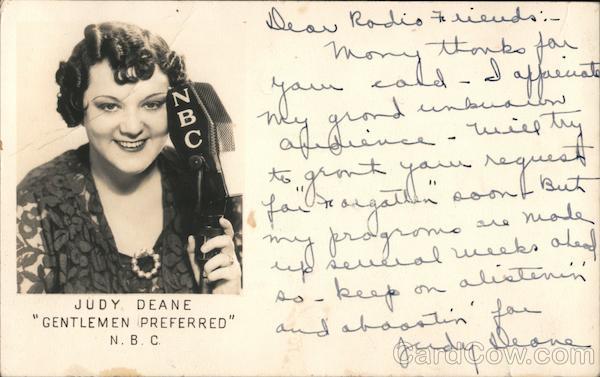 NBC
JUDY DEANE
"GENTLEMEN PREFERRED"
N.B.C.
Dear Radio Friends:-
Many thanks for
your card - I appreciate
my grand unknown
audience - Will try
to grant your request
for "Forgotten" soon - But
my programs are made
up several weeks ahead
so - keep on alistenin'
and aboostin' for
Judy Deane
CardCow.com